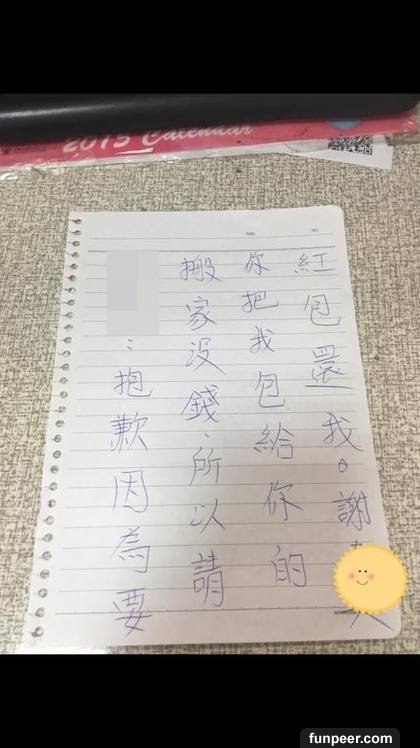 2015 Calendar
：抱歉因為要
搬家没錢、所以請
你把我包給你的
紅包還我。謝
funpeer.com